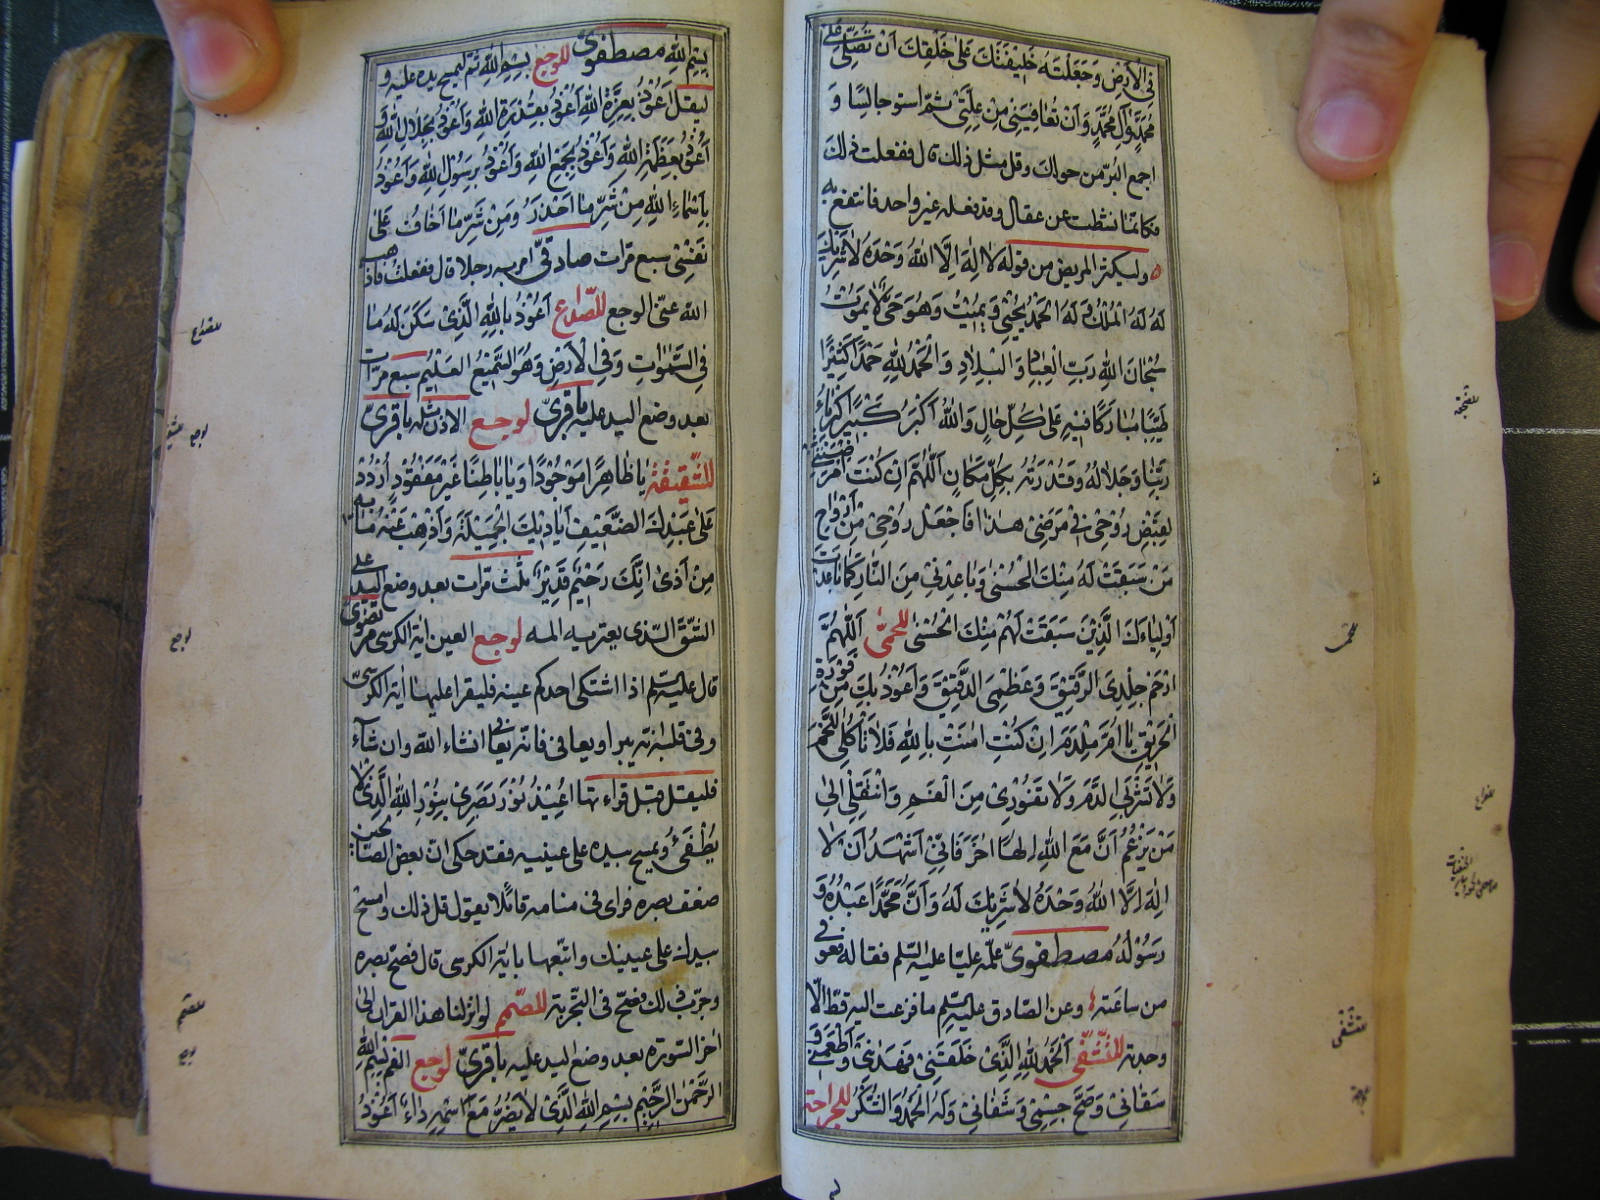 فِي الْاَرْضِ وَجَعَلْتَهُ خَلِيفَتَكَ عَلٰى خَلْقِكَ اَنْ تُصَلِّيَ عَلٰى
مُحَمَّدٍ وَآلِ مُحَمَّدٍ وَاَنْ تُعَافِيَنِي مِنْ عِلَّتِي ثمّ استو جالسًا و
اجمع البرّ من حولك وقل مثل ذلك قال ففعلت ذلك
فكانّما نشطت من عقال وقد فعله غير واحد فانتفع به
وليكثر المريض من قوله لَا اِلٰهَ اِلَّا اللهُ وَحْدَهُ لَا شَرِيكَ
لَهُ لَهُ الْمُلْكُ وَلَهُ الْحَمْدُ يُحْيِي وَيُمِيتُ وَهُوَ حَيٌّ لَا يَمُوتُ
سُبْحَانَ اللهِ رَبِّ الْعِبَادِ وَالْبِلَادِ وَالْحَمْدُ لِلّٰهِ حَمْدًا كَثِيرًا
طَيِّبًا مُبَارَكًا فِيهِ عَلٰى كُلِّ حَالٍ وَاللهُ اَكْبَرُ كَبِيرًا كِبْرِيَاءُ
رَبِّنَا وَجَلَالُهُ وَقُدْرَتُهُ بِكُلِّ مَكَانٍ اَللّٰهُمَّ اِنْ كُنْتَ اَمْرَضْتَنِي
لِقَبْضِ رُوحِي فِي مَرَضِي هٰذَا فَاجْعَلْ رُوحِي مِنْ اَرْوَاحِ
مَنْ سَبَقَتْ لَهُ مِنْكَ الْحُسْنٰى وَبَاعِدْنِي مِنَ النَّارِ كَمَا بَاعَدْتَ
اَوْلِيَاءَكَ الَّذِينَ سَبَقَتْ لَهُمْ مِنْكَ الْحُسْنٰى للحمّى اَللّٰهُمَّ
ارْحَمْ جِلْدِيَ الرَّقِيقَ وَعَظْمِيَ الدَّقِيقَ وَاَعُوذُ بِكَ مِنْ فَوْرَةِ
الْحَرِيقِ يَا اُمَّ مِلْدَمٍ اِنْ كُنْتِ اٰمَنْتِ بِاللهِ فَلَا تَأْكُلِي اللَّحْمَ
وَلَا تَشْرَبِي الدَّمَ وَلَا تَفُورِي مِنَ الْفَمِ وَانْتَقِلِي اِلٰى
مَنْ يَزْعُمُ اَنَّ مَعَ اللهِ اِلٰهًا اٰخَرَ فَاِنِّي اَشْهَدُ اَنْ لَا
اِلٰهَ اِلَّا اللهُ وَحْدَهُ لَا شَرِيكَ لَهُ وَاَنَّ مُحَمَّدًا عَبْدُهُ وَ
رَسُولُهُ مصطفويّ علّمه عليّا عليه السّلم فقاله فعوفي
من ساعته وعن الصّادق عليه السّلم ما فزعت اليه قطّ الّا
وجدته للتشفّي اَلْحَمْدُ لِلّٰهِ الَّذِي خَلَقَنِي فَهَدَانِي وَاَطْعَمَنِي وَ
سَقَانِي وَصَحَّ جِسْمِي وَشَفَانِي وَلَهُ الْحَمْدُ وَالشُّكْرُ للجراحة
بِسْمِ اللهِ مصطفويّ للوجع بِسْمِ اللهِ ثمّ ليمسح يده عليه و
ليقل اَعُوذُ بِعِزَّةِ اللهِ اَعُوذُ بِقُدْرَةِ اللهِ وَاَعُوذُ بِجَلَالِ اللهِ وَ
اَعُوذُ بِعَظَمَةِ اللهِ وَاَعُوذُ بِجَمْعِ اللهِ وَاَعُوذُ بِرَسُولِ اللهِ وَاَعُوذُ
بِاَسْمَاءِ اللهِ مِنْ شَرِّ مَا اَحْذَرُ وَمِنْ شَرِّ مَا اَخَافُ عَلٰى
نَفْسِي سبع مرّات صادقيّ امر به رجلا قال ففعلت فاذهب
الله عنّي الوجع للصّداع اَعُوذُ بِاللهِ الَّذِي سَكَنَ لَهُ مَا
فِي السَّمٰوَاتِ وَفِي الْاَرْضِ وَهُوَ السَّمِيعُ الْعَلِيمُ سبع مرّات
بعد وضع اليد عليه باقريّ لوجع الاذن مثله باقريّ
للشّقيقة يَا ظَاهِرًا مَوْجُودًا وَيَا بَاطِنًا غَيْرَ مَفْقُودٍ اُرْدُدْ
عَلٰى عَبْدِكَ الضَّعِيفِ اَيَادِيَكَ الْجَمِيلَةَ وَاَذْهِبْ عَنْهُ مَا بِهِ
مِنْ اَذًى اِنَّكَ رَحِيمٌ قَدِيرٌ ثلث مرّات بعد وضع اليد على
الشّقّ الّذي يعتريه المه لوجع العين اية الكرسي مرتضوي
قال عليه السّلم اذا اشتكى احدكم عينه فليقرا عليها اية الكرسيّ
وفي قلبه انه يبرا ويعافى فانّه يعافى انشاء الله وان شاء
فليقل قبل قراءتها اُعِيذُ نُورَ بَصَرِي بِنُورِ اللهِ الَّذِي لَا
يُطْفَئُ ويمسح بيده على عينيه فقد حكى انّ بعض الصّالحين
ضعف بصره فراى في منامه قائلا يقول قل ذلك وامسح
بيدك على عينيك واتبعها باية الكرسي قال فصحّ بصره
وجرّب ذلك فصحّ في التّجربة للصّمم لو انزلنا هذا القرآن الى
اخر السّورة بعد وضع اليد عليه باقريّ لوجع الفم بِسْمِ اللهِ
الرَّحْمٰنِ الرَّحِيمِ بِسْمِ اللهِ الَّذِي لَا يَضُرُّ مَعَ اسْمِهِ دَاءٌ اَعُوذُ
للصداع
لوجع
للصمم